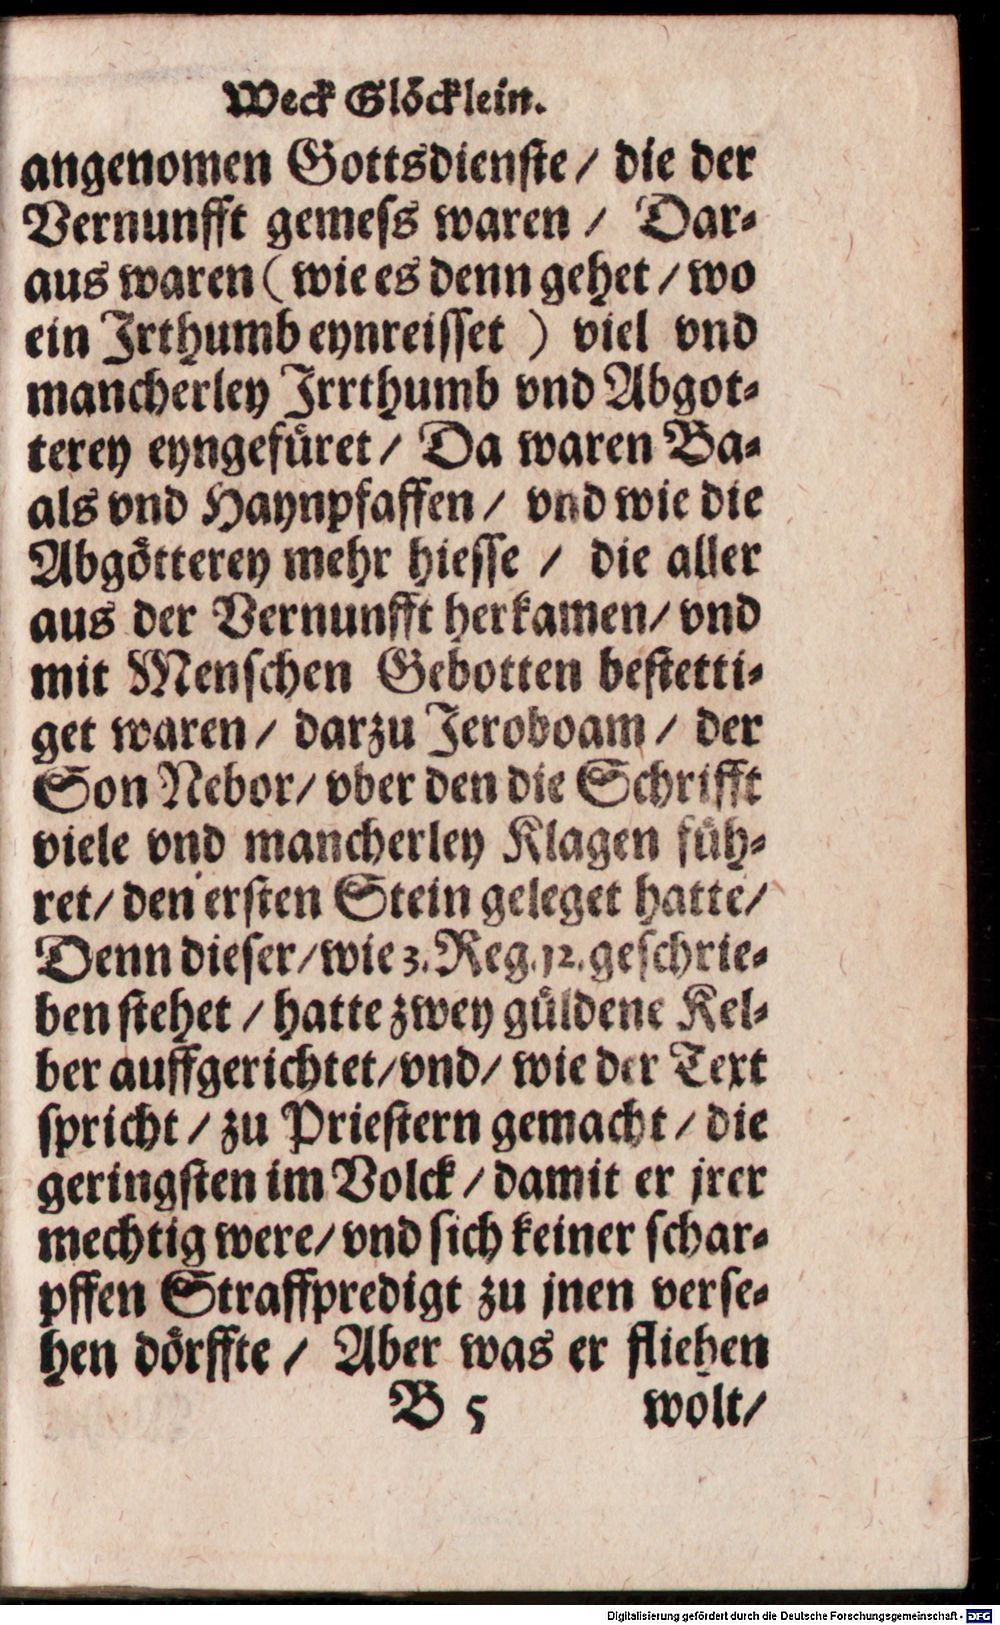 Weck Glöcklein.
angenomen Gottsdienste / die der
Vernunfft gemess waren / Dar-
aus waren ( wie es denn gehet / wo
ein Jrthumb eynreisset ) viel vnd
mancherley Jrrthumb vnd Abgot-
terey eyngefüret / Da waren Ba-
als vnd Haynpfaffen / vnd wie die
Abgötterey mehr hiesse / die aller
aus der Vernunfft herkamen / vnd
mit Menschen Gebotten bestetti-
get waren / darzu Jeroboam / der
Son Nebor / vber den die Schrifft
viele vnd mancherley Klagen füh-
ret / den ersten Stein geleget hatte /
Denn dieser / wie 3. Reg. 12. geschrie-
ben stehet / hatte zwey güldene Kel-
ber auffgerichtet / vnd / wie der Text
spricht / zu Priestern gemacht / die
geringsten im Volck / damit er jrer
mechtig were / vnd sich keiner schar-
pffen Straffpredigt zu jnen verse-
hen dörffte / Aber was er fliehen
B 5 wolt /
Digitalisierung gefördert durch die Deutsche Forschungsgemeinschaft - DFG